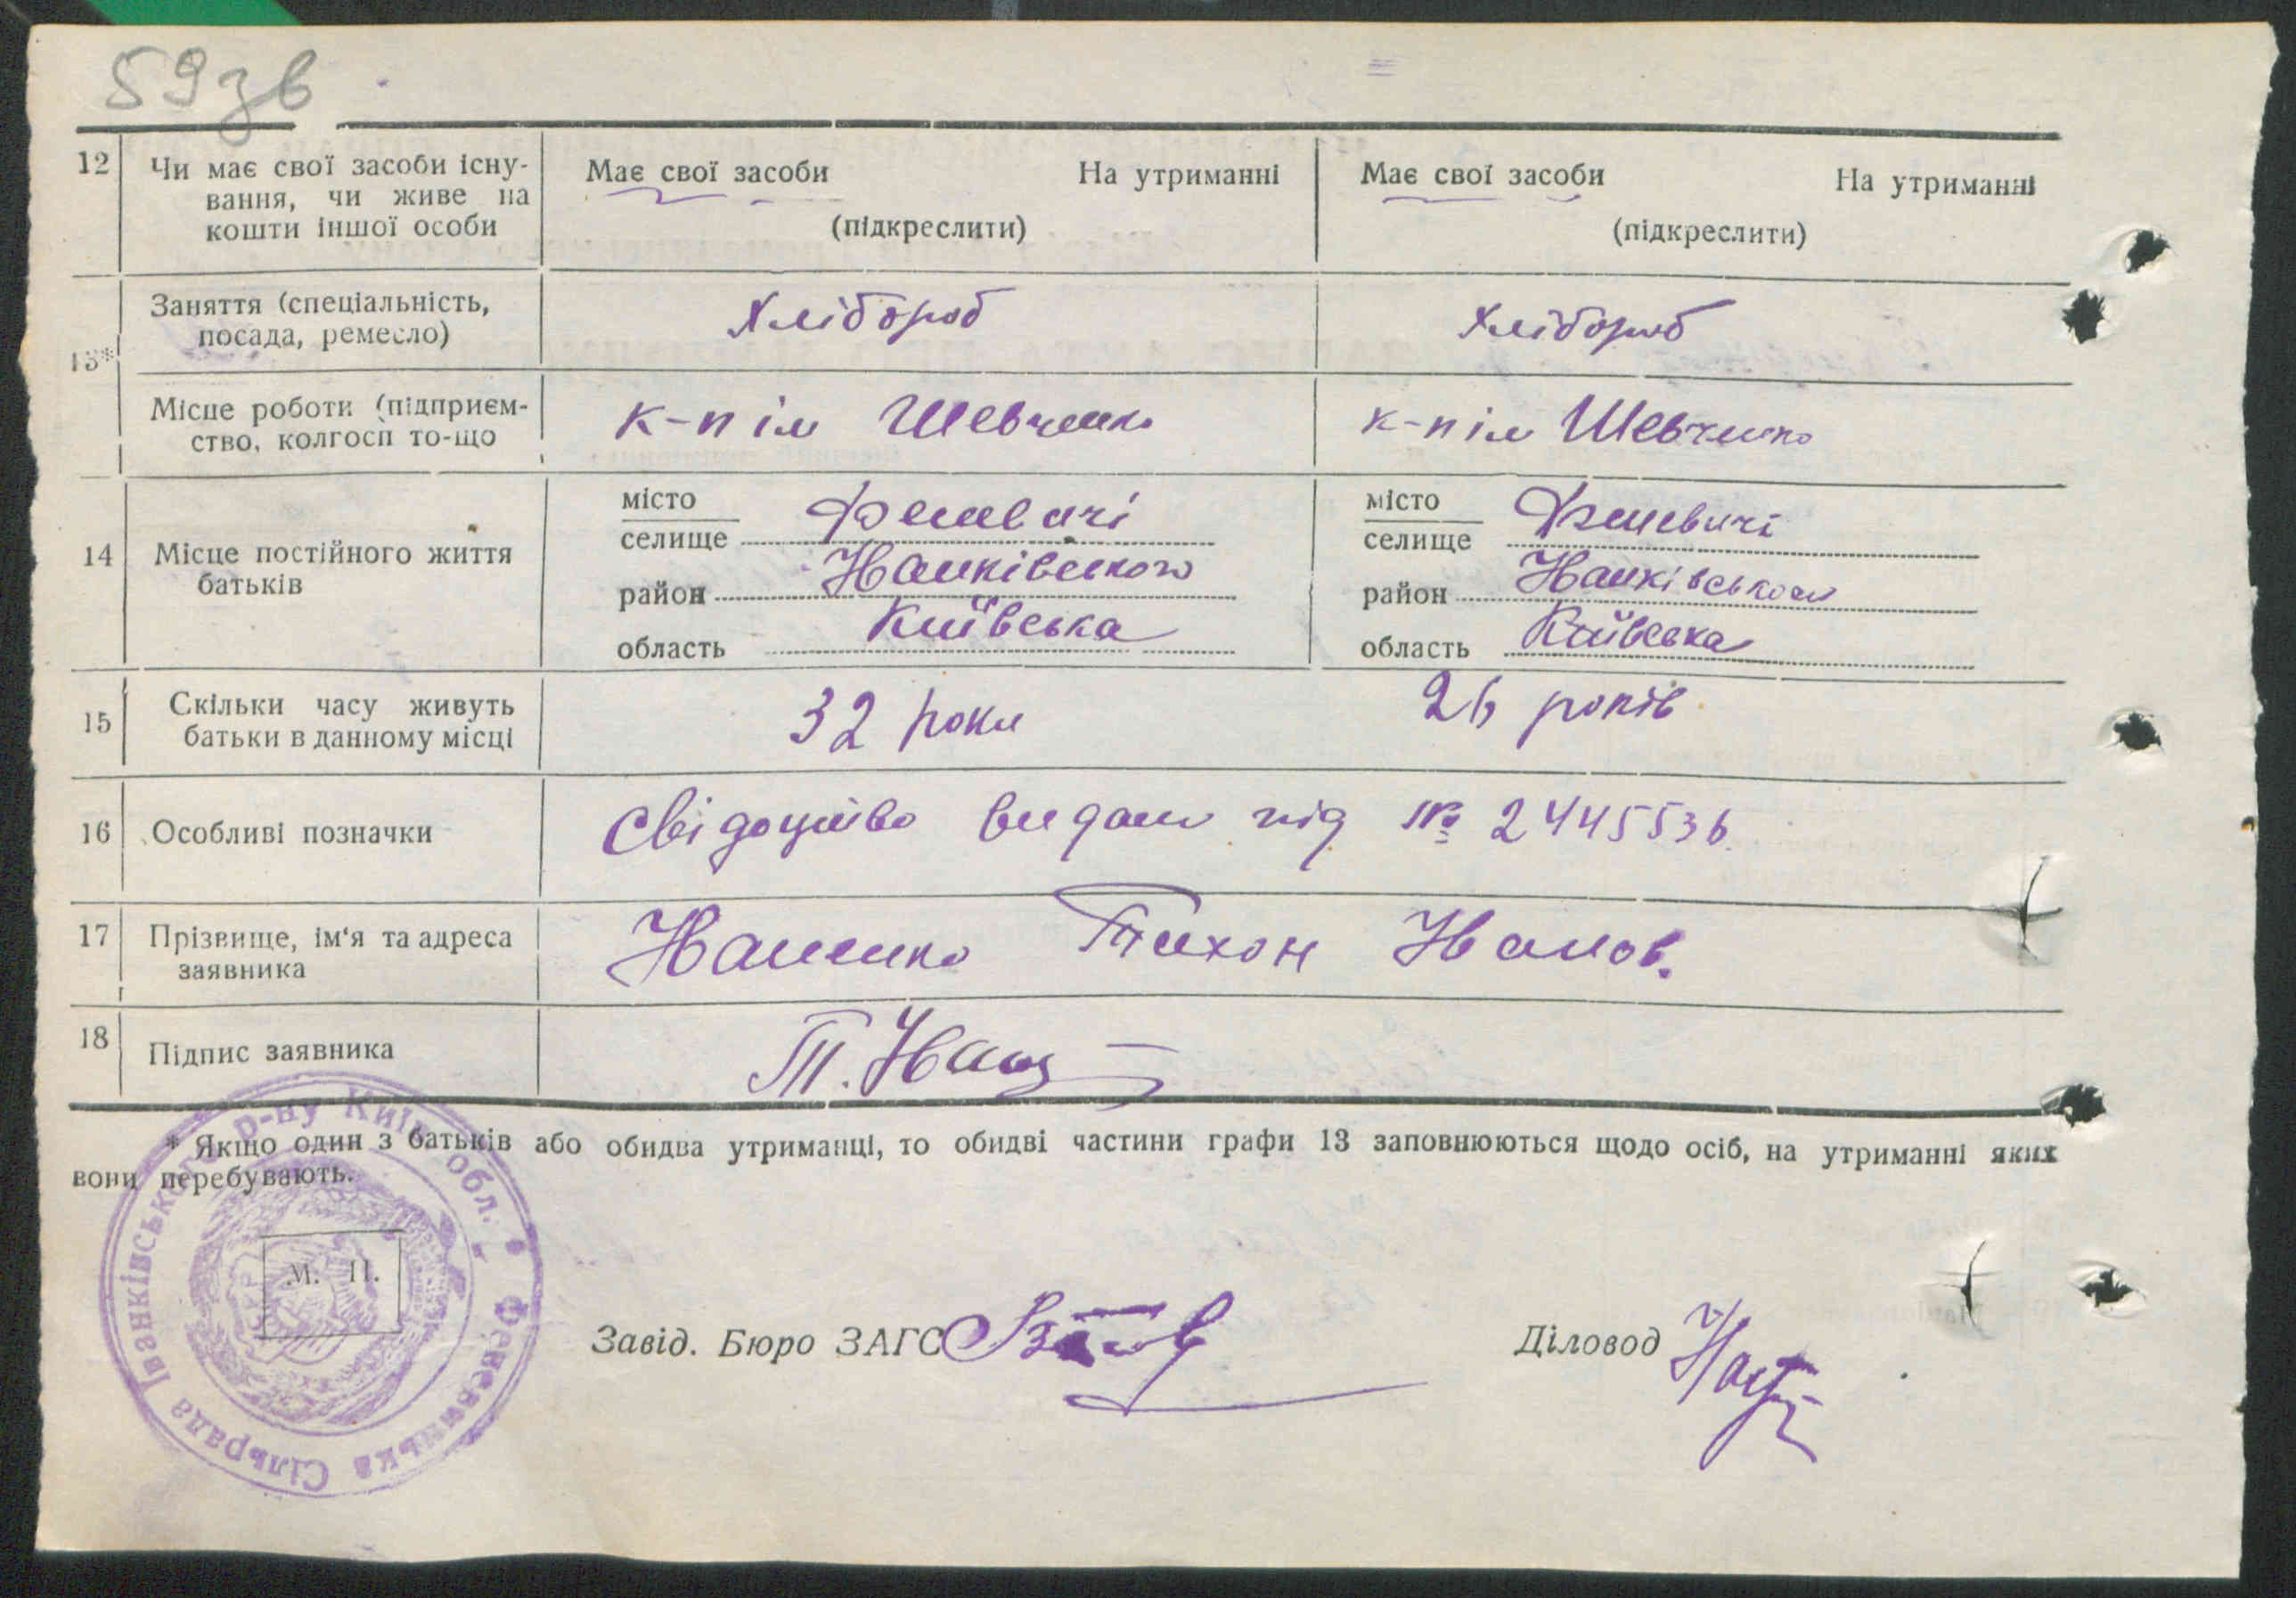 59зв
12 Чи має свої засоби існу- Має свої засоби На утриманні Має свої засоби На утриманні
вання, чи живе на
кошти іншої особи (підкреслити) (підкреслити)
13* Заняття (спеціальність, Хлібороб Хлібороб
посада, ремесло)
Місце роботи (підприєм- к-п ім Шевченко к-п ім Шевченко
ство, колгосп то-що
14 Місце постійного життя батьків
місто селище Феневичі місто селище Феневичі
район Іванківського район Іванківського
область Київська область Київська
15 Скільки часу живуть 32 роки 26 років
батьки в данному місці
16 Особливі позначки Свідоцтво видано під № 2445536
17 Прізвище, ім'я та адреса Іваненко Тихон Іванов.
заявника
18 Підпис заявника Т. Іван
* Якщо один з батьків або обидва утриманці, то обидві частини графи 13 заповнюються щодо осіб, на утриманні яких
вони перебувають.
Феневицька Сільрада Іванківського р-ну Київ. обл.
М. П.
Завід. Бюро ЗАГС Діловод